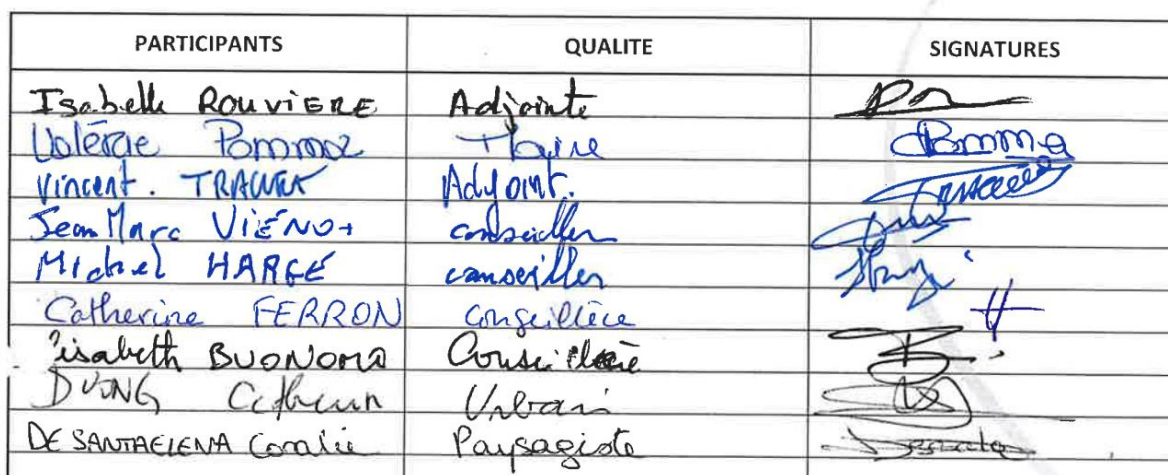 PARTICIPANTS QUALITE SIGNATURES
Isabelle ROUVIERE Adjointe
Valérie Pommaz Maire
Vincent. Adjoint.
Jean Marc VIÉNOT conseiller
Michel HARGÉ conseiller
Catherine FERRON conseillère
BUONOMO Conseillère
DUONG
DE SANTAELENA Coralie Paysagiste